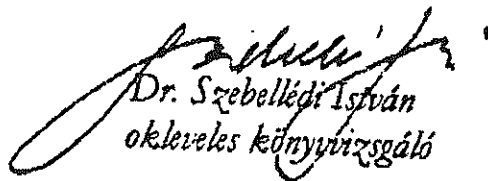 Dr. Szebellédi István
okleveles könyvvizsgáló